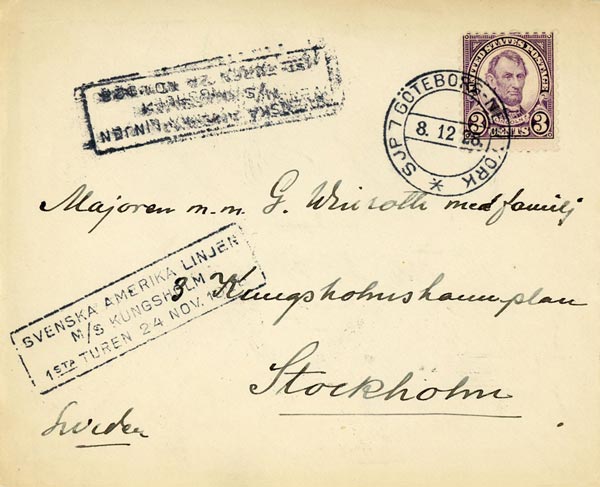 UNITED STATES POSTAGE
3 CENTS 3
SJP 7 GÖTEBORG-NEW YORK
8. 12 28.
SVENSKA AMERIKA LINJEN
M/S KUNGSHOLM
1STA TUREN 24 NOV.
Majoren m.m. G. Winroth med familj
3 Kungsholmshamnplan
Stockholm
Sweden
SVENSKA AMERIKA LINJEN
M/S KUNGSHOLM
1STA TUREN 24 NOV. 1